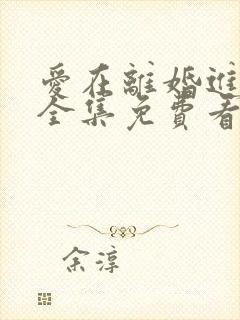 愛在離婚進
全集免費看
余淳